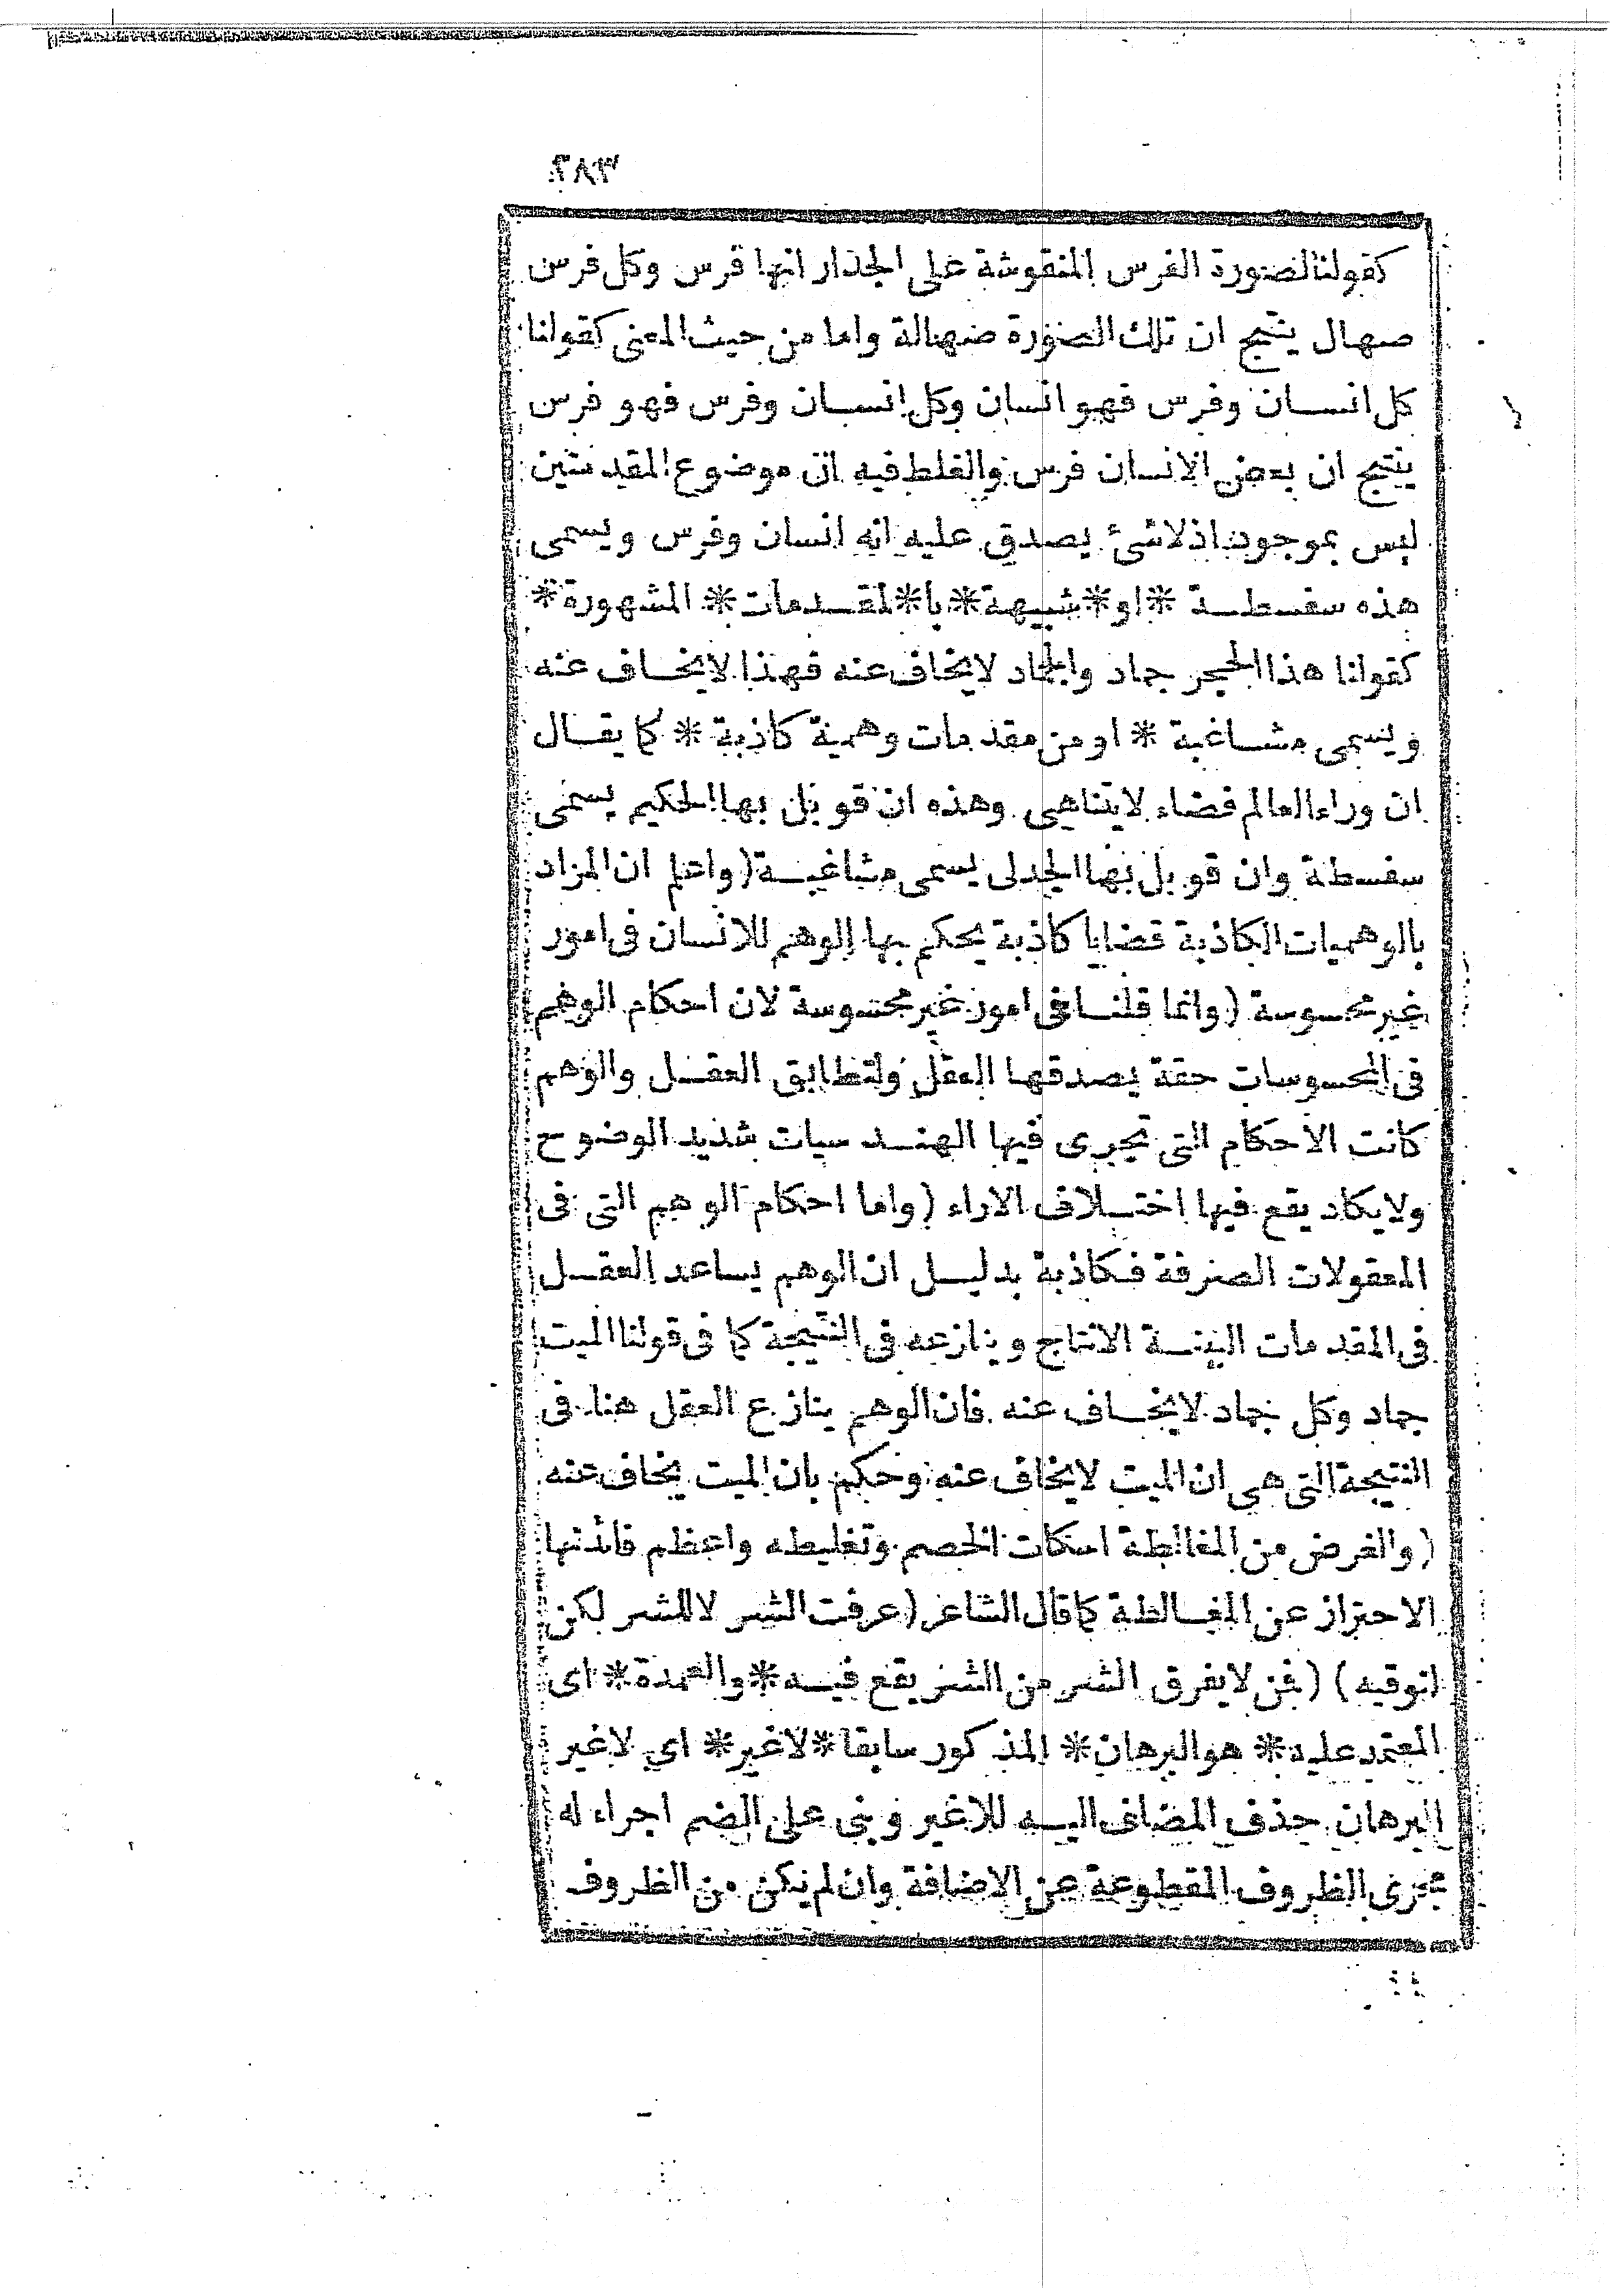 ٢٨٣
كقولنا لصورة الفرس المنقوشة على الجدار انها فرس وكل فرس
صهال ينتج ان تلك الصورة صهالة واما من حيث المعنى كقولنا
كل انسان وفرس فهو انسان وكل انسان وفرس فهو فرس
ينتج ان بعض الانسان فرس والغلط فيه ان موضوع المقدمتين
ليس بموجود اذ لاشئ يصدق عليه انه انسان وفرس ويسمى
هذه سفسطة * او * شبيهة * با * لمقدمات * المشهورة *
كقولنا هذا الحجر جماد والجماد لايخاف عنه فهذا لايخاف عنه
ويسمى مشاغبة * او من مقدمات وهمية كاذبة * كما يقال
ان وراء العالم فضاء لايتناهى وهذه ان قوبل بها الحكيم يسمى
سفسطة وان قوبل بها الجدلى يسمى مشاغبة (واعلم ان المراد
بالوهميات الكاذبة قضايا كاذبة يحكم بها الوهم للانسان فى امور
غير محسوسة (وانما قلنا فى امور غير محسوسة لان احكام الوهم
فى المحسوسات حقة يصدقها العقل ولتطابق العقل والوهم
كانت الاحكام التى تجرى فيها الهندسيات شديد الوضوح
ولايكاد يقع فيها اختلاف الاراء (واما احكام الوهم التى فى
المعقولات الصرفة فكاذبة بدليل ان الوهم يساعد العقل
فى المقدمات البينة الانتاج وينازعه فى النتيجة كما فى قولنا الميت
جماد وكل جماد لايخاف عنه فان الوهم ينازع العقل هنا فى
النتيجة التى هى ان الميت لايخاف عنه وحكم بان الميت يخاف عنه
(والغرض من المغالطة اسكات الخصم وتغليطه واعظم فائدتها
الاحتراز عن المغالطة كما قال الشاعر (عرفت الشر لا للشر لكن
لتوقيه) (فمن لايفرق الشر من الشر يقع فيه * والعمدة * اى
المعتمد عليه * هو البرهان * المذكور سابقا * لاغير * اى لاغير
البرهان حذف المضاف اليه للاغير وبنى على الضم اجراء له
مجرى الظروف المقطوعة عن الاضافة وان لم يكن من الظروف